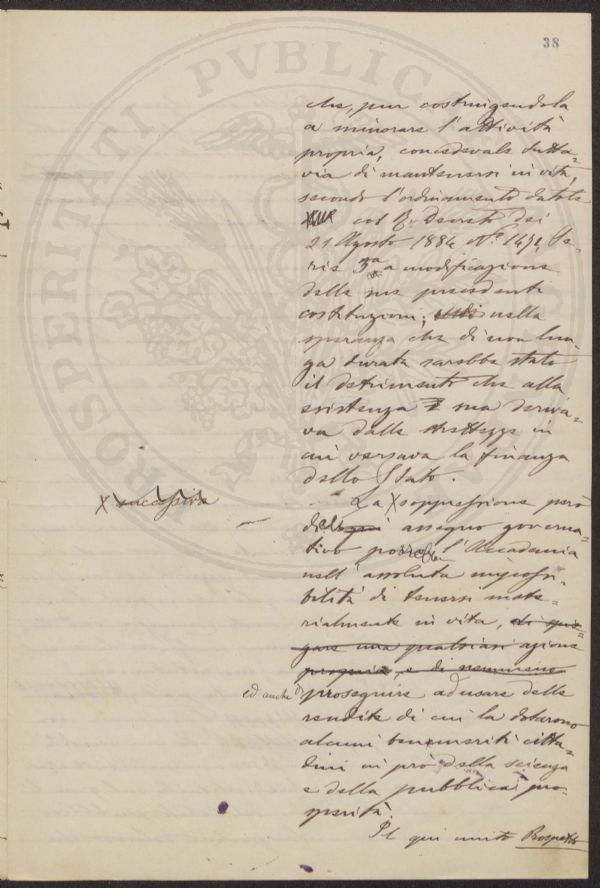 38
che, pur costringendola
a minorare l'attività
propria, concedevale tutta-
via di mantenersi in vita,
secondo l'ordinamento datole
col R. Decreto dei
21 Agosto 1884 Nº Se-
rie 3ª a modificazione
delle sue precedenti
costituzioni; nella
speranza che di non lun-
ga durata sarebbe stato
il detrimento che alla
esistenza sua deriva-
va dalle strettezze in
cui versava la finanza
dello Stato.
X successiva
La X soppressione però
di assegno governa-
tivo porrebbe l'Accademia
nell'assoluta impossi-
bilità di tenersi mate-
rialmente in vita, di spie-
gare una qualsiasi azione
propria, e di nemmeno
ed anche di
proseguire ad usare delle
rendite di cui la dotarono
alcuni benemeriti citta-
dini in prò della scienza
e della pubblica pro-
sperità.
Il qui unito Prospetto
PROSPERITATI PVBLICAE